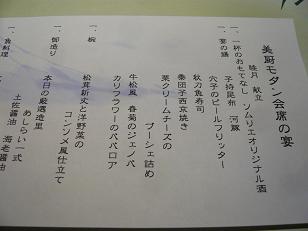 美厨モダン会席の宴
睦月 献立
一、一杯のおもてなし ソムリエオリジナル酒
一、宴の膳
子持昆布 河豚
穴子のビールフリッター
秋刀魚寿司
養団子西京焼き
栗クリームチーズの
ブーシェ詰め
牛松風 春菊のジェノバ
カリフラワーのババロア
一、椀
松茸真丈と洋野菜の
コンソメ風仕立て
一、御造り
本日の厳選造里
あしらい一式
土佐醤油 海老醤油
一、魚料理